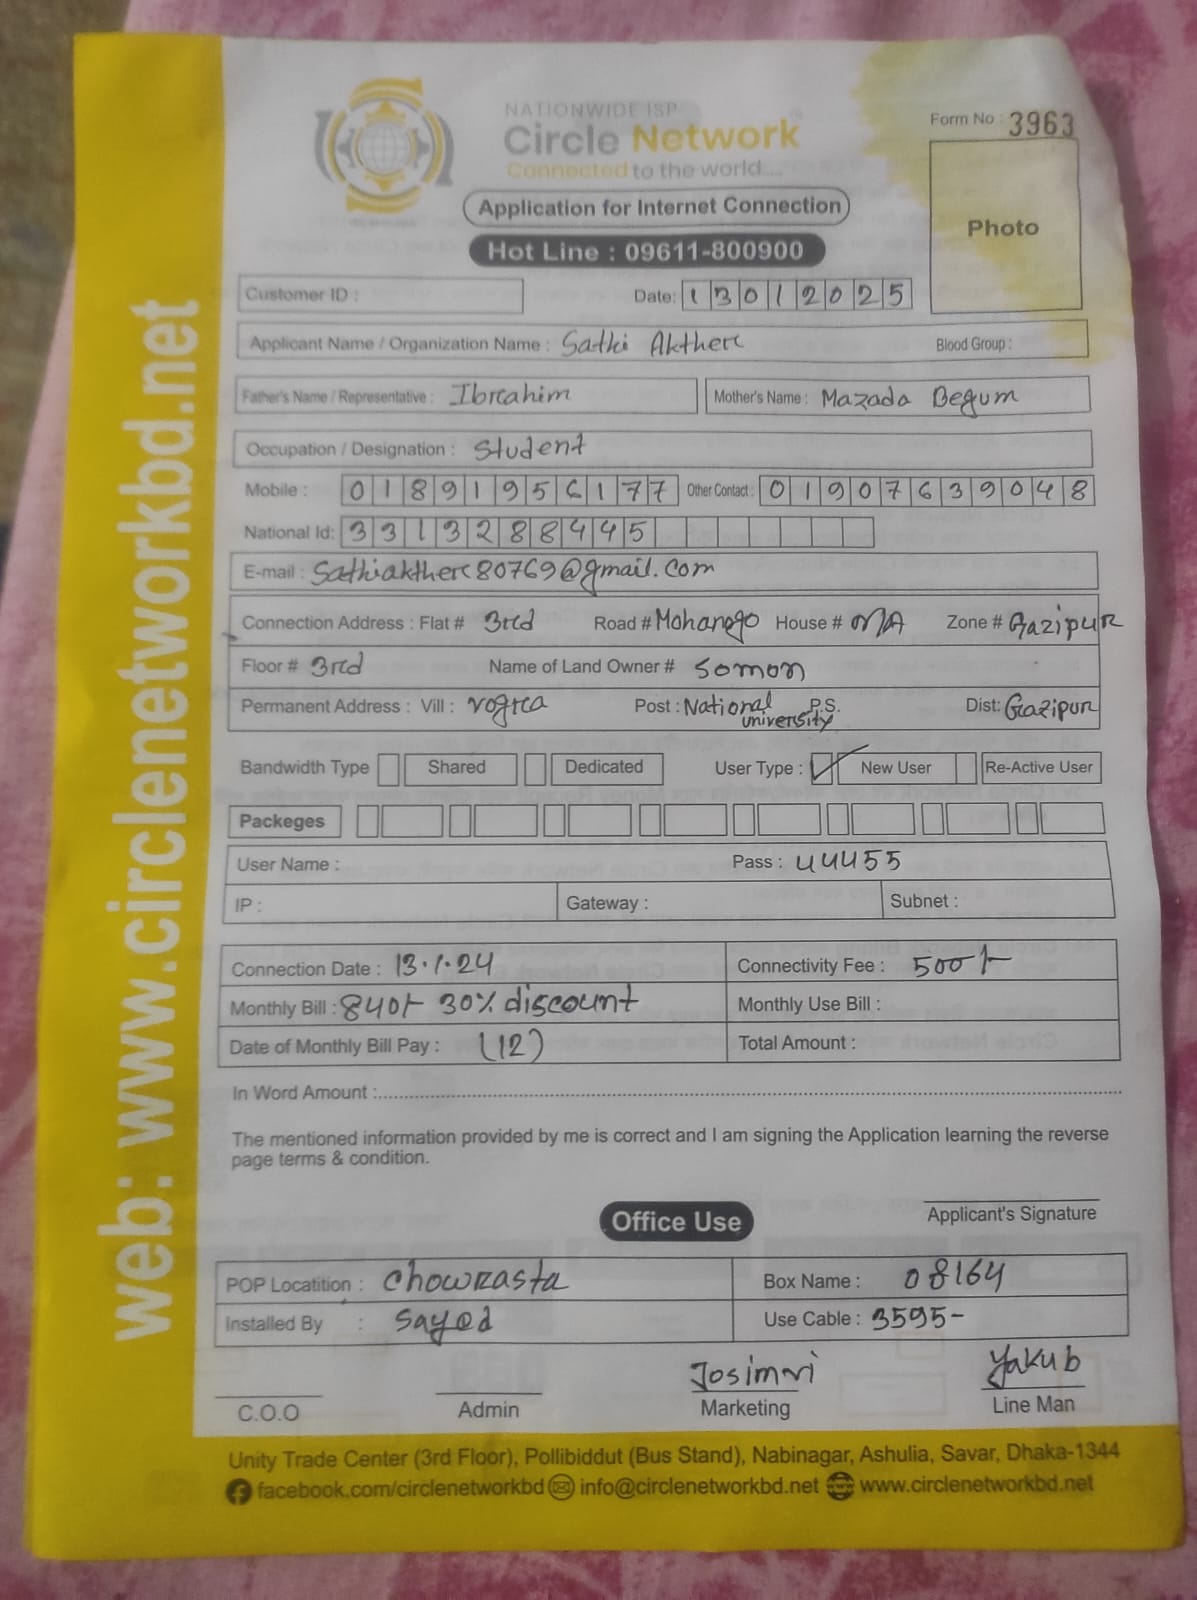 NATIONWIDE ISP
Circle Network
Connected to the world....
Form No : 3963
Photo
Application for Internet Connection
Hot Line : 09611-800900
Customer ID :
Date: 13012025
Applicant Name / Organization Name : Sathi Akther
Blood Group :
Father's Name / Representative : Ibrahim
Mother's Name : Mazada Begum
Occupation / Designation : Student
Mobile : 01891956177 Other Contact : 01907639048
National Id: 3313288445
E-mail : Sathiakther80769@gmail.com
Connection Address : Flat # 3rd Road # Mohanogo House # N/A Zone # Gazipur
Floor # 3rd Name of Land Owner # Somon
Permanent Address : Vill : vogra Post : National university P.S. Dist: Gazipur
Bandwidth Type Shared Dedicated User Type : New User Re-Active User
Packeges
User Name : Pass : 44455
IP : Gateway : Subnet :
Connection Date : 13.1.24 Connectivity Fee : 500/-
Monthly Bill : 840/- 30% discount Monthly Use Bill :
Date of Monthly Bill Pay : (12) Total Amount :
In Word Amount :
The mentioned information provided by me is correct and I am signing the Application learning the reverse
page terms & condition.
Office Use
Applicant's Signature
POP Locatition : Chowrasta Box Name : 08164
Installed By : Sayed Use Cable : 3595-
Josimri Yakub
C.O.O Admin Marketing Line Man
Unity Trade Center (3rd Floor), Pollibiddut (Bus Stand), Nabinagar, Ashulia, Savar, Dhaka-1344
facebook.com/circlenetworkbd info@circlenetworkbd.net www.circlenetworkbd.net
web: www.circlenetworkbd.net